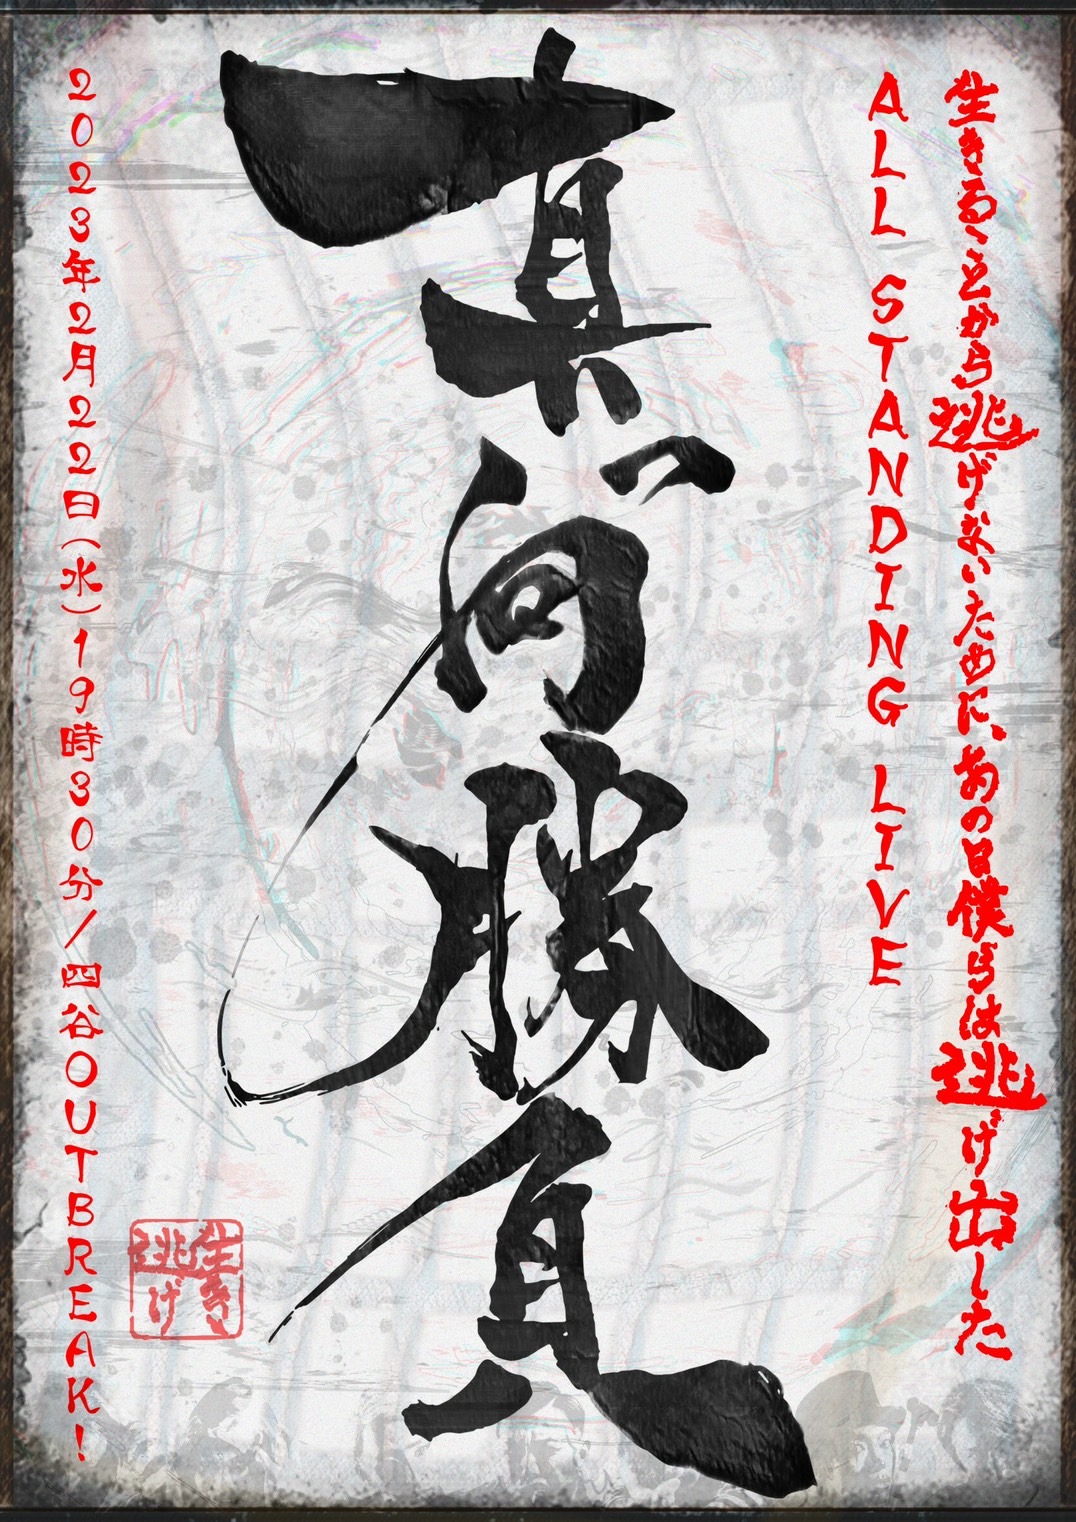 生きることから逃げないために、あの日僕らは逃げ出した
ALL STANDING LIVE
真向勝負
生き
逃げ
2023年2月22日(水)19時30分/四谷OUTBREAK!